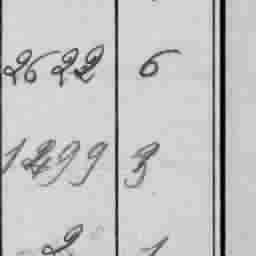 2622 6
1299 3
2 1